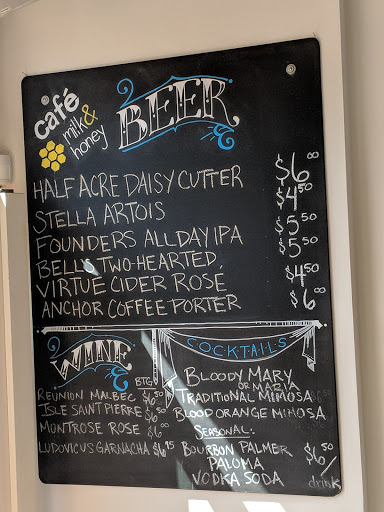 café
milk &
honey
BEER
HALF ACRE DAISY CUTTER $6.00
STELLA ARTOIS $4.50
FOUNDERS ALL DAY IPA $5.50
BELLS TWO-HEARTED $5.50
VIRTUE CIDER ROSÉ $4.50
ANCHOR COFFEE PORTER $6.00
WINE
BTG
REUNION MALBEC $6.50
ISLE SAINT PIERRE $6.50
MONTROSE ROSE $6.00
LUDOVICUS GARNACHA $6.95
COCKTAILS
BLOODY MARY
OR MARIA
TRADITIONAL MIMOSA
BLOOD ORANGE MIMOSA
SEASONAL:
BOURBON PALMER
PALOMA
VODKA SODA
$6.50/
drink